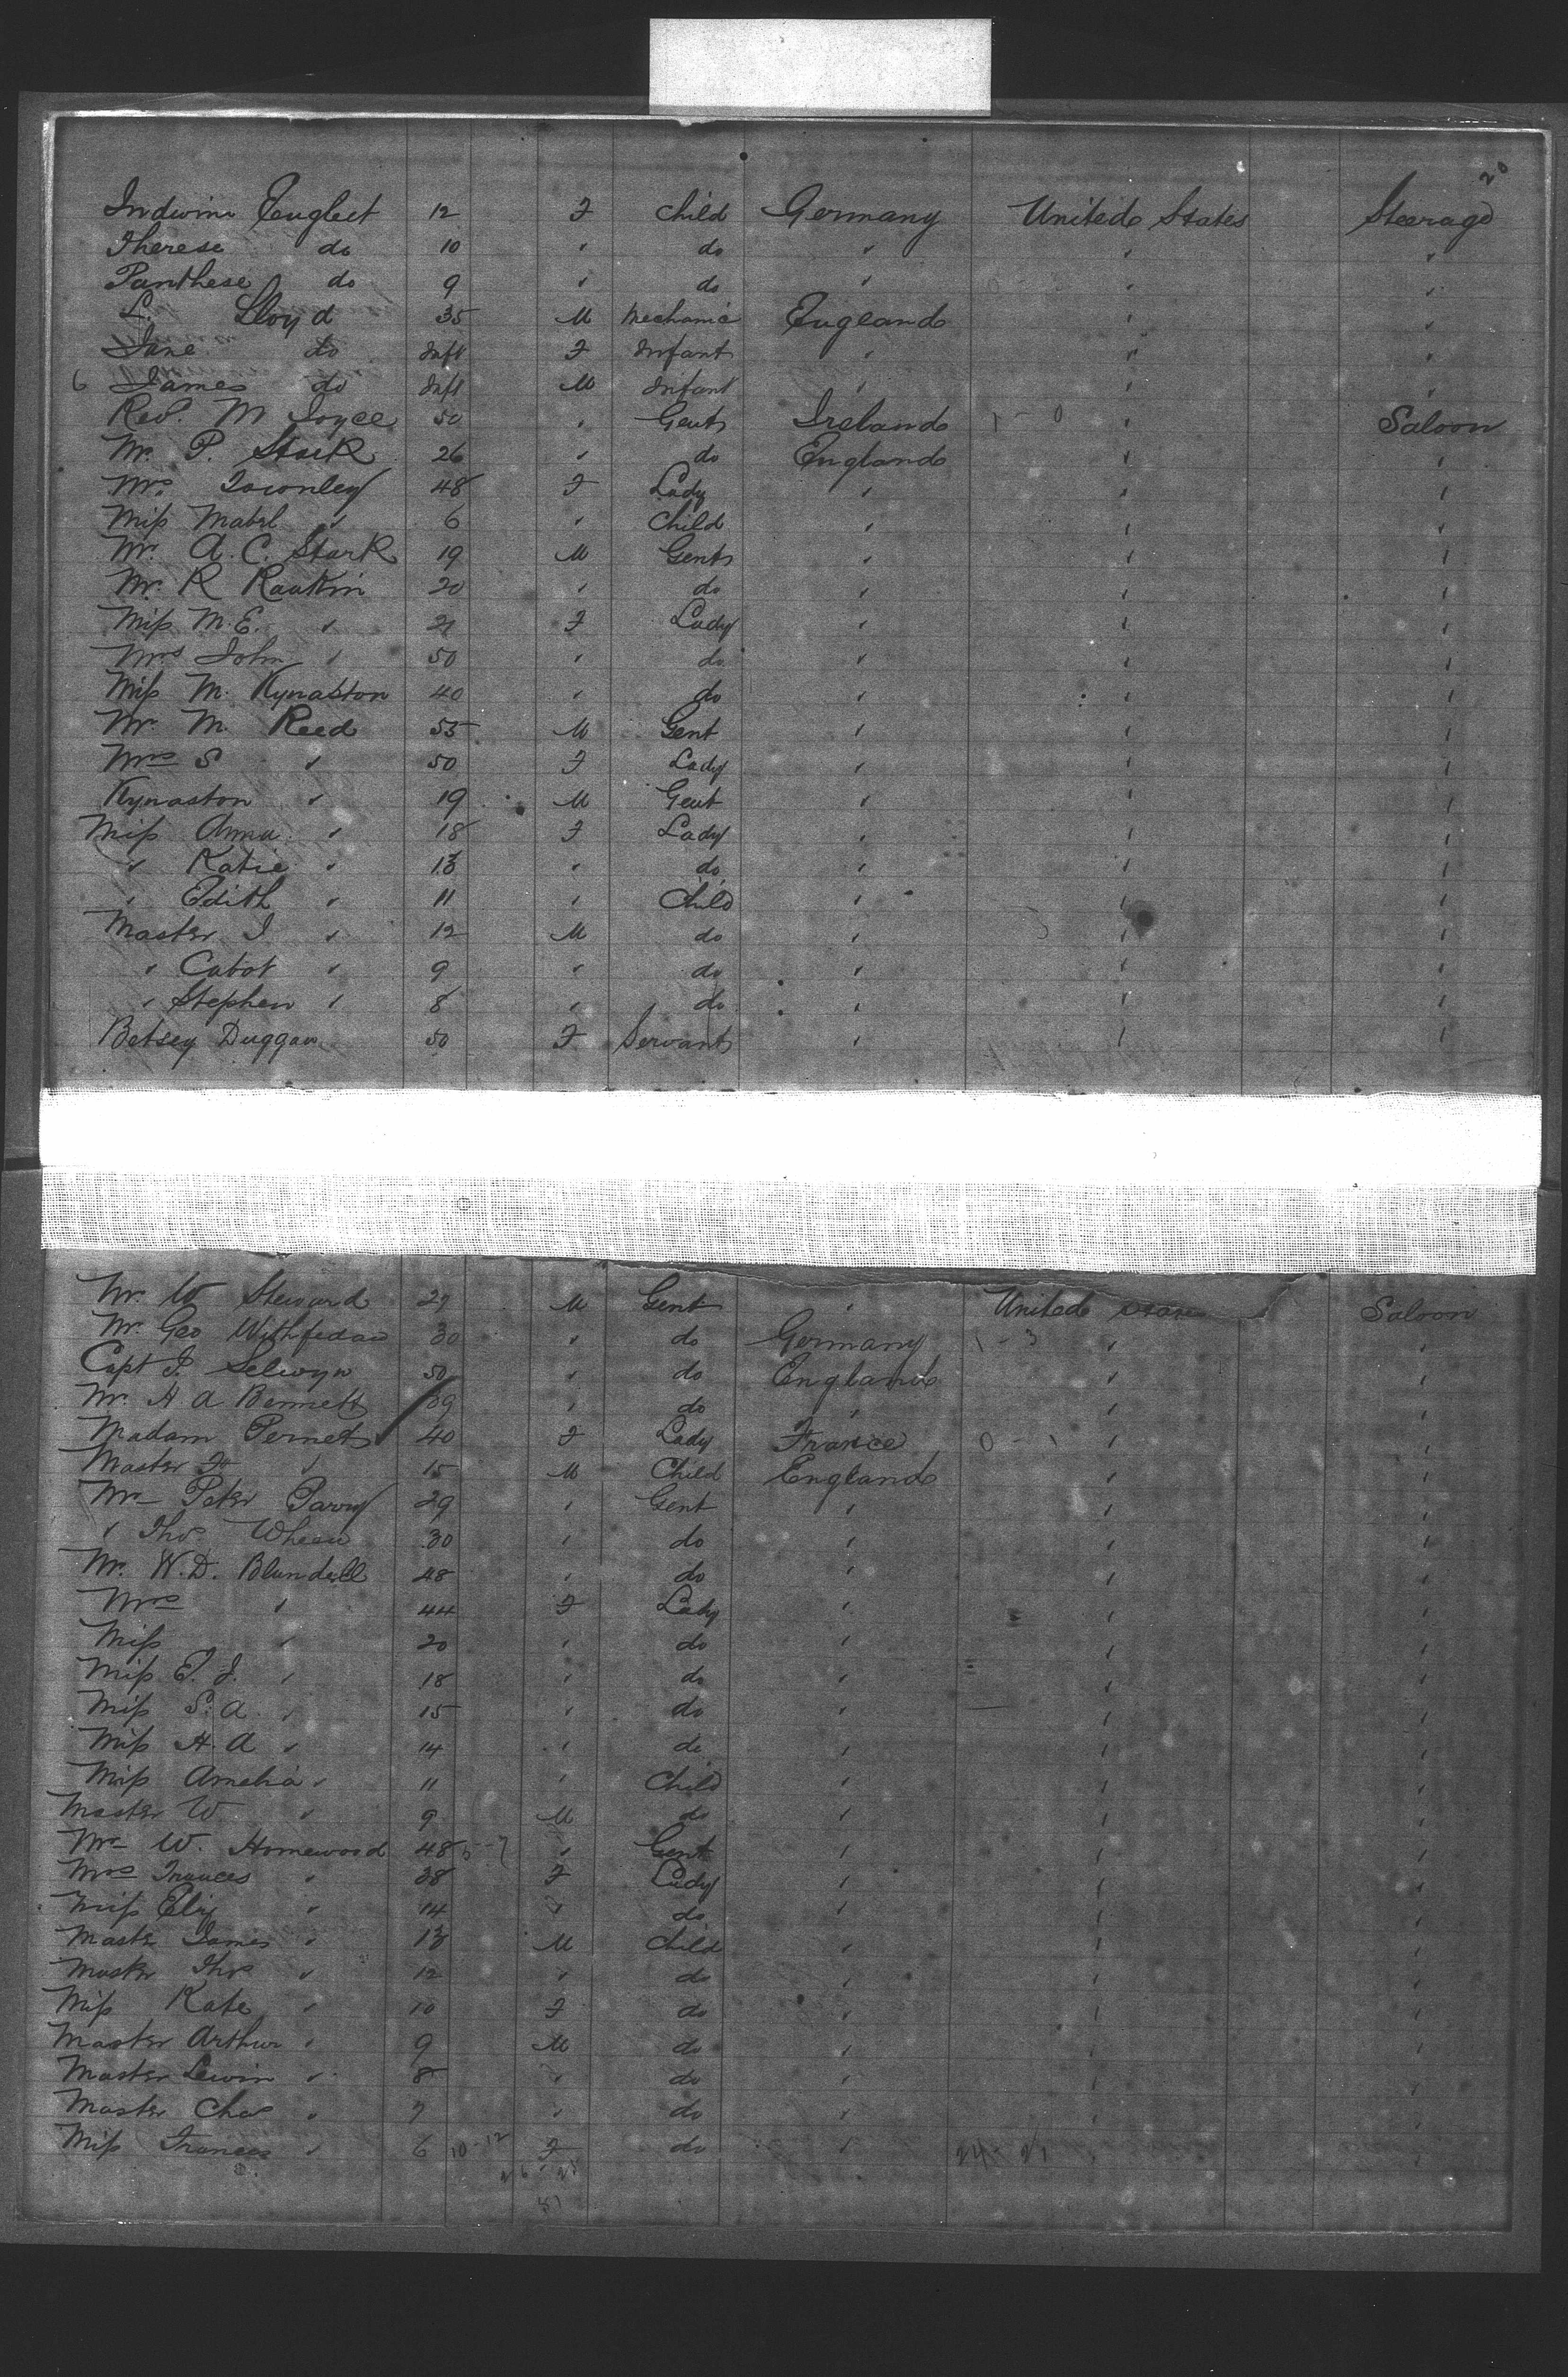 20
Indwine Tenglect 12 F Child Germany United States Steerage
Therese do 10 " do " " "
Panthese do 9 " do " " "
L. Lloyd 35 M Mechanic England " "
Jane do Inft F Infant " " "
6 James do Inft M Infant " " "
Revd. M Joyce 50 " Gent Ireland 1 - 0 " Saloon
Mr. P. Stark 26 " do England " "
Mrs Townley 48 F Lady " " "
Miss Mabel " 6 " Child " " "
Mr. A. C. Stark 19 M Gent " " "
Mr. R Rankin 20 " do " " "
Miss M. E. " 21 F Lady " " "
Mrs John " 50 " do " " "
Miss M. Kynaston 40 " do " " "
Mr. M. Reed 55 M Gent " " "
Mrs S " 50 F Lady " " "
Kynaston " 19 M Gent " " "
Miss Anna " 18 F Lady " " "
" Katie " 13 " do " " "
" Edith " 11 " Child " " "
Master J. " 12 M do " " "
" Cabot " 9 " do " " "
" Stephen " 8 " do " " "
Betsey Duggan 50 F Servant " " "
Mr. W Steward 27 M Gent " United States Saloon
Mr. Geo 30 " do Germany 1 - 3 " "
Capt J. Selwyn 50 " do England " "
Mr. H A Bennett 39 " do " " "
Madam Pernet 40 F Lady France 0 - 1 " "
Master " 15 M Child England " "
Mr Peter Parry 29 " Gent " " "
" Thos. Wheen 30 " do " " "
Mr. W. D. Blundell 48 " do " " "
Mrs " 44 F Lady " " "
Miss " 20 " do " " "
Miss E. J. " 18 " do " " "
Miss S. A. " 15 " do " " "
Miss H. A " 14 " do " " "
Miss Amelia " 11 " Child " " "
Master W " 9 M do " " "
Mr W. Homewood 48 5 - 7 " Gent " " "
Mrs Frances " 38 F Lady " " "
Miss Eliz " 14 " do " " "
Master James " 13 M Child " " "
Master Thos " 12 " do " " "
Miss Kate " 10 F do " " "
Master Arthur " 9 M do " " "
Master Lewin " 8 " do " " "
Master Chas " 7 " do " " "
Miss Frances " 6 10 - 12 F do " 24 - 21 "
51